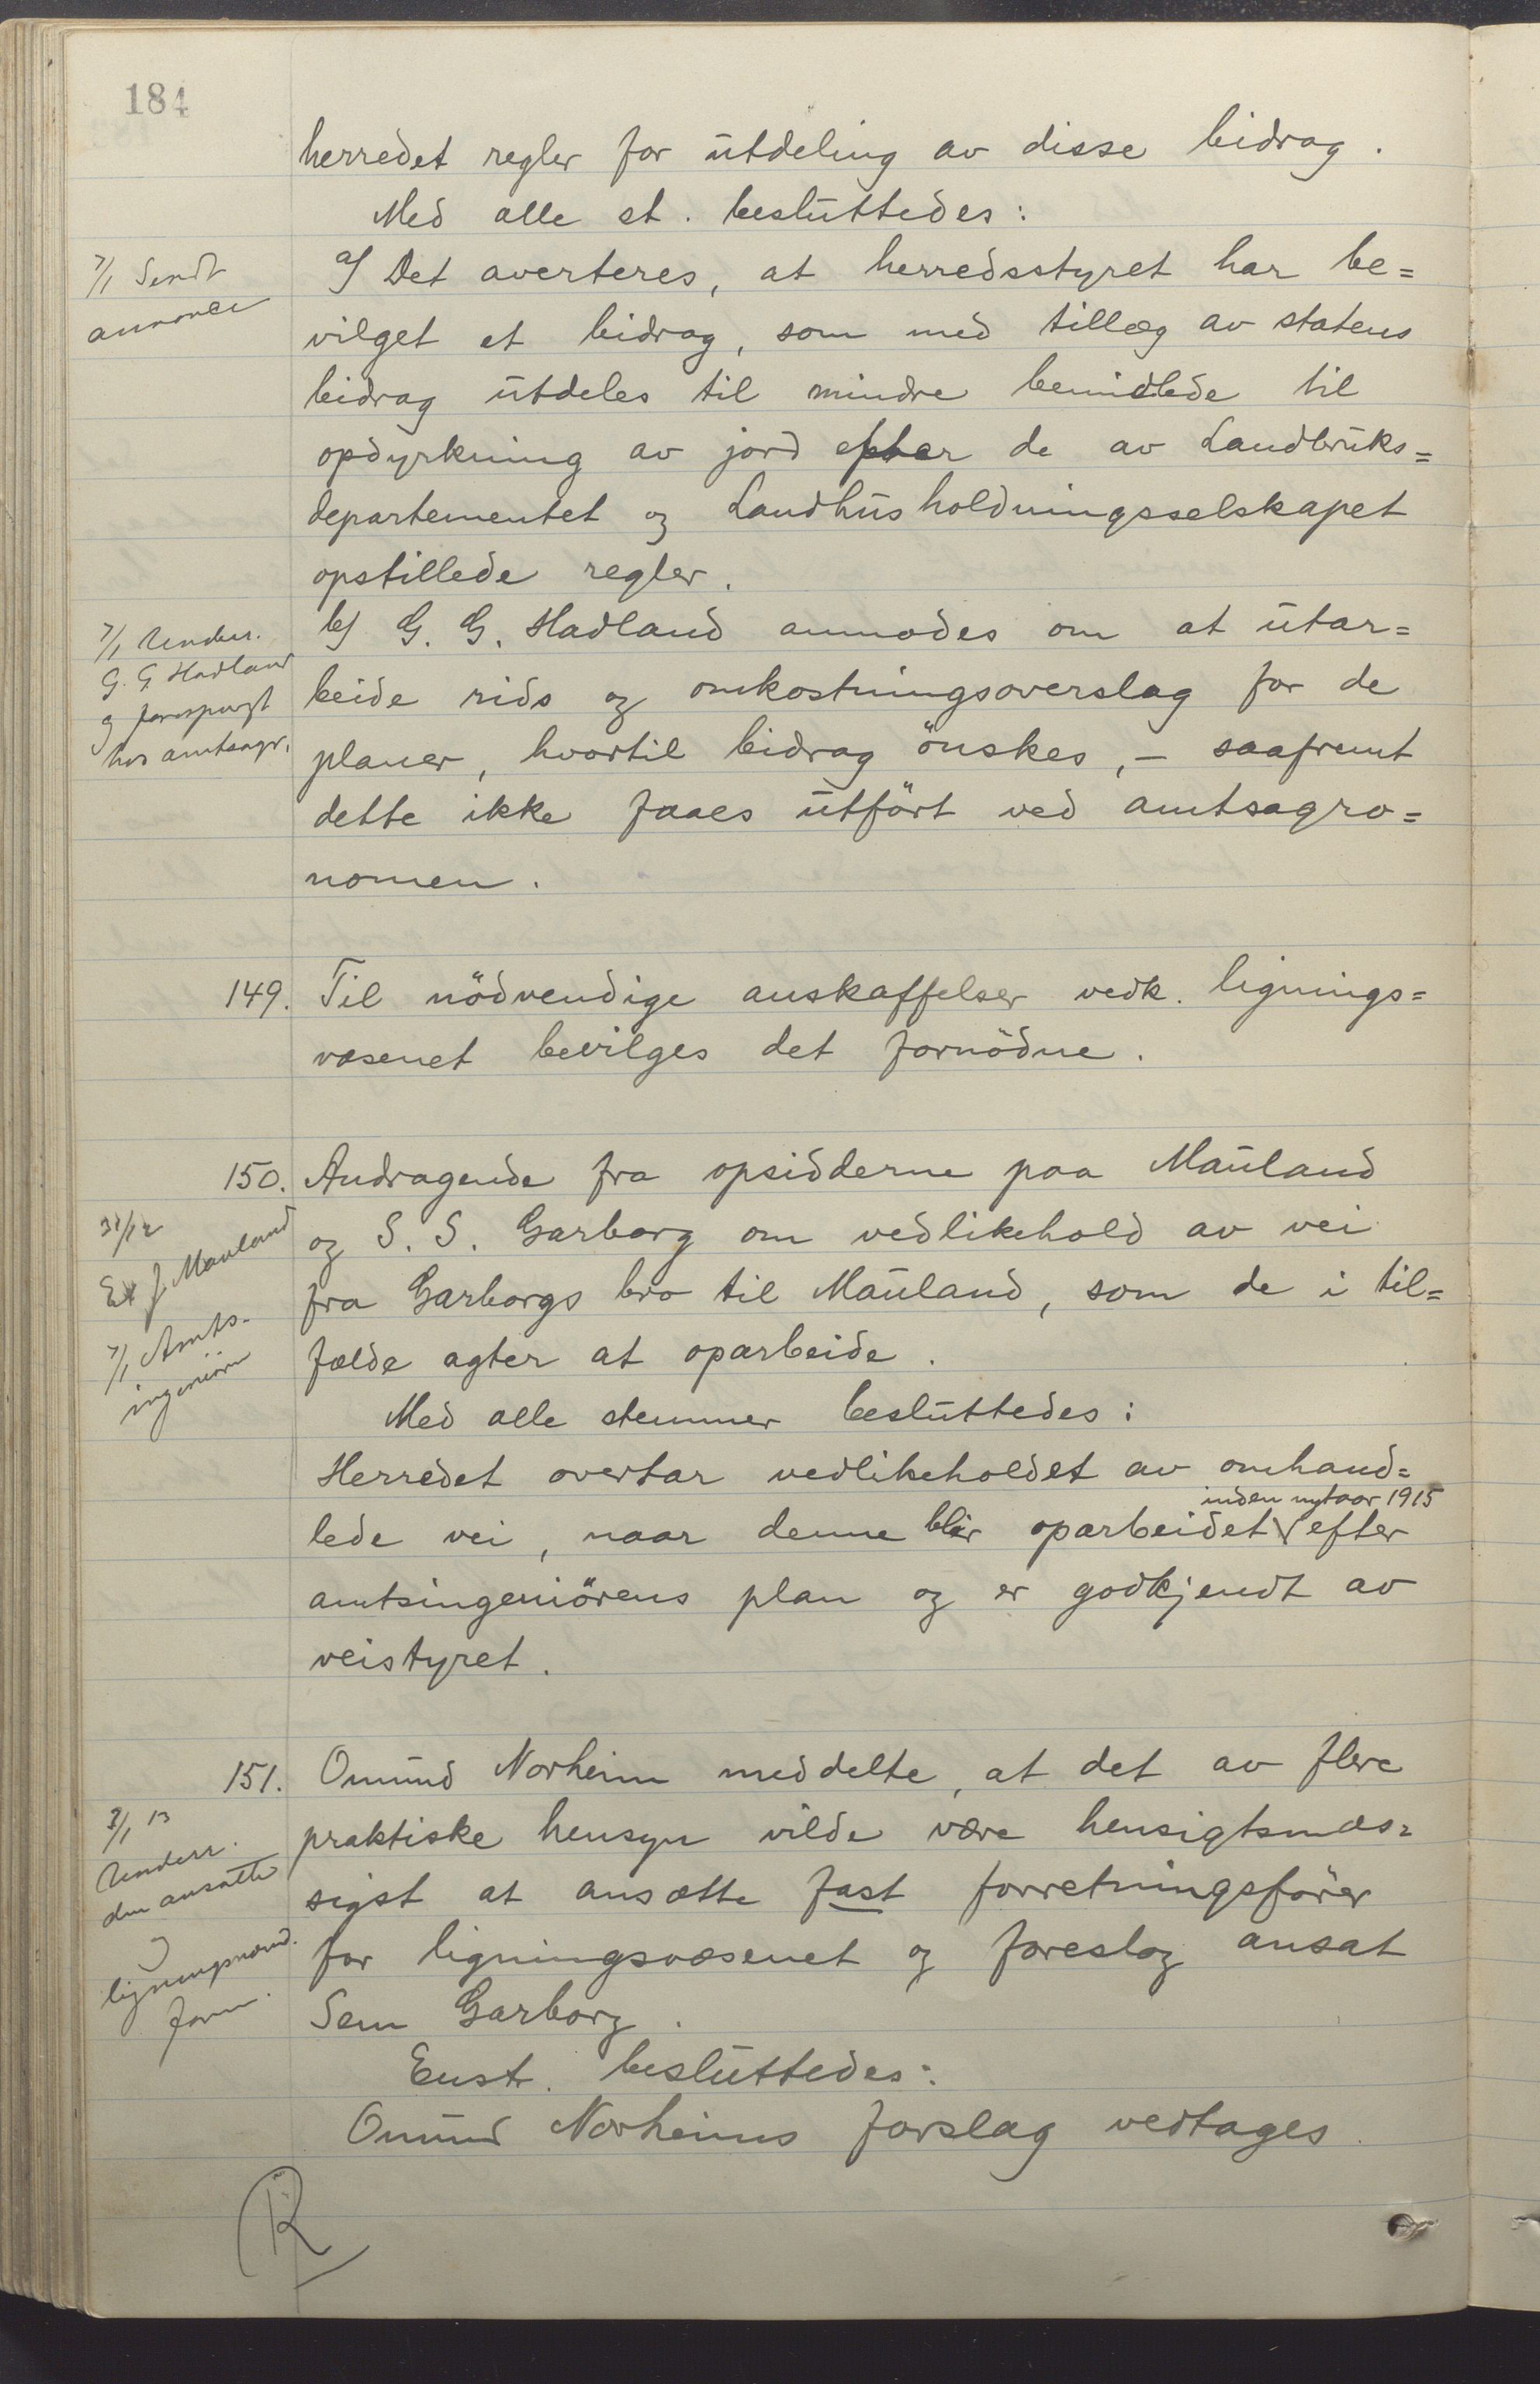 184
herredet regler for utdeling av disse bidrag.
Med alle st. besluttedes:
7/1 Sendt
annonce
a/ Det averteres, at herredsstyret har be=
vilget et bidrag, som med tillæg av statens
bidrag utdeles til mindre bemidlede til
opdyrkning av jord efter de av Landbruks=
departementet og Landhusholdningsselskapet
opstillede regler.
7/1 Underr.
G. G. Hadland
og forespurgt
hos amtsagr.
b/ G. G. Hadland anmodes om at utar=
beide rids og omkostningsoverslag for de
planer, hvortil bidrag önskes, – saafremt
dette ikke faaes utfört ved amtsagro=
nomen.
149. Til nödvendige anskaffelser vedk. lignings=
væsenet bevilges det fornödne.
150. Andragende fra opsidderne paa Mauland
og S. S. Garborg om vedlikehold av vei
fra Garborgs bro til Mauland, som de i til=
fælde agter at oparbeide.
31/12
Ex J. Mauland
7/1 Amts-
ingeniören
Med alle stemmer besluttedes:
Herredet overtar vedlikeholdet av omhand=
lede vei, naar denne blir oparbeidet inden nytaar 1915 efter
amtsingeniörens plan og er godkjendt av
veistyret.
151. Omund Norheim meddelte, at det av flere
praktiske hensyn vilde være hensigtsmæs=
sigst at ansætte fast forretningsförer
for ligningsvæsenet og foreslog ansat
Sem Garborg.
8/1 13
Underr.
den ansatte
og
ligningsnævnd.
form.
Enst. besluttedes:
Omund Norheims forslag vedtages.
R